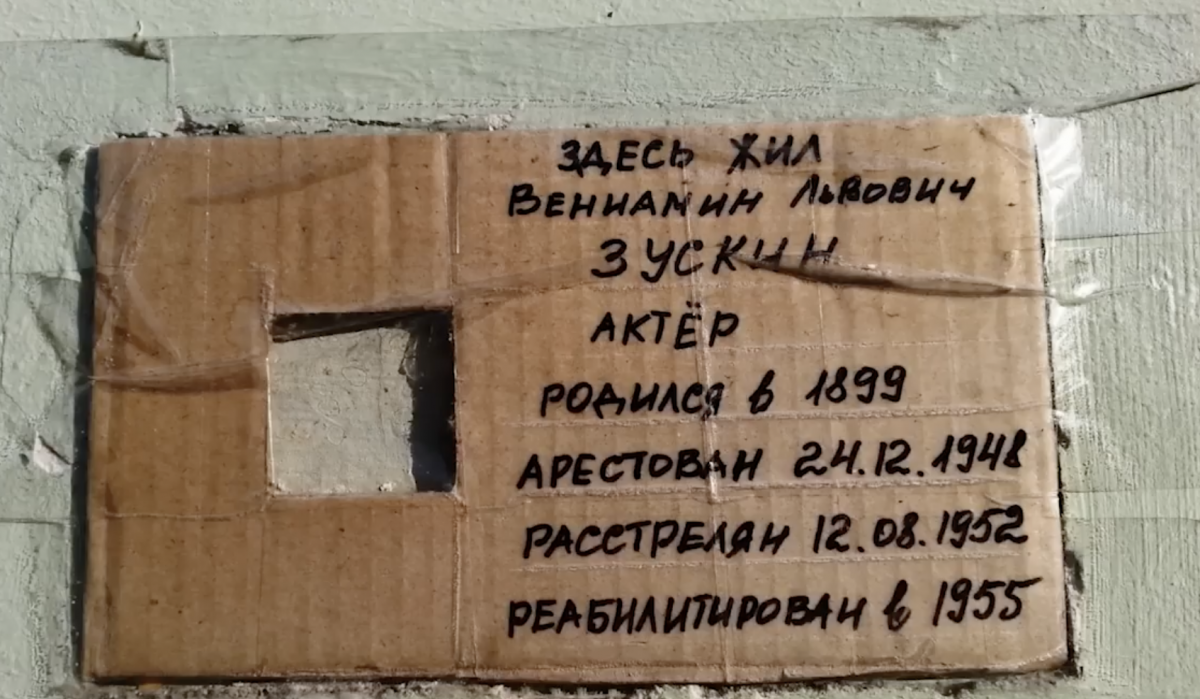 ЗДЕСЬ ЖИЛ
ВЕНИАМИН ЛЬВОВИЧ
ЗУСКИН
АКТЁР
РОДИЛСЯ в 1899
АРЕСТОВАН 24.12.1948
РАССТРЕЛЯН 12.08.1952
РЕАБИЛИТИРОВАН в 1955